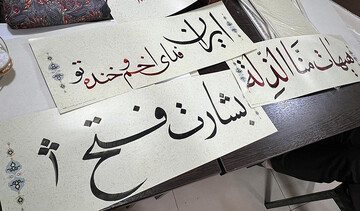 ایران
فدای اخم و خنده تو
هیهات منا الذلة
بشارت فتح